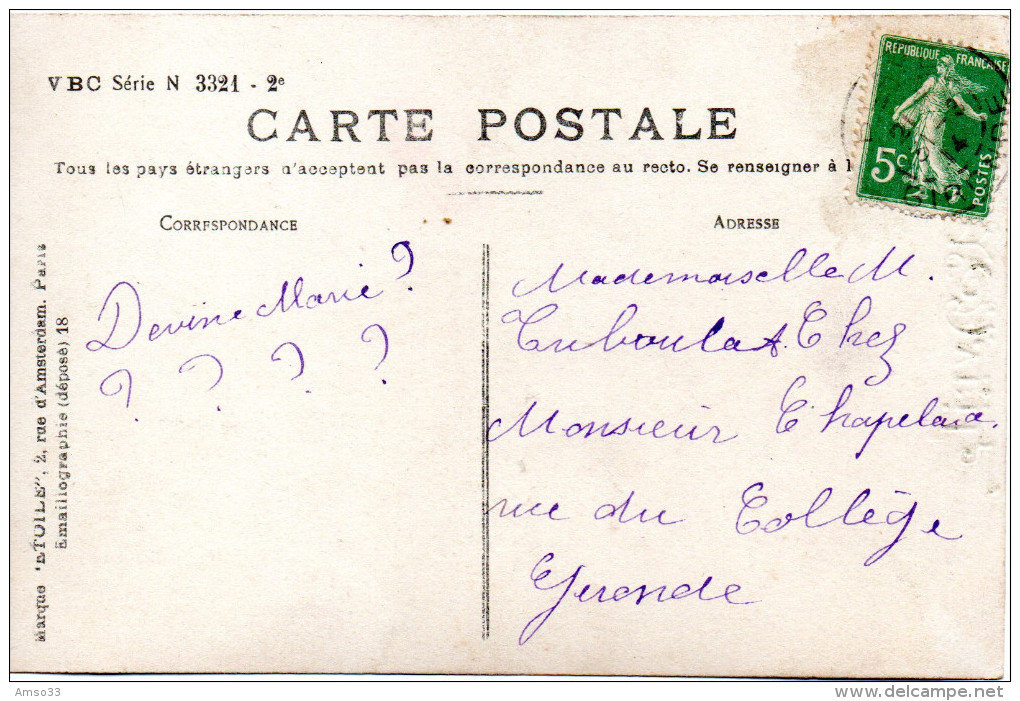 VBC Série N 3321 - 2e
CARTE POSTALE
Tous les pays étrangers n'acceptent pas la correspondance au recto. Se renseigner à l
CORRESPONDANCE
ADRESSE
REPUBLIQUE FRANÇAISE
5c
POSTES
Devine Marie?
? ? ? ?
Mademoiselle M.
Chez
Monsieur
rue du Collège
Gironde
Marque "ETOILE", 2, rue d'Amsterdam. Paris
Emaillographie (déposé) 18
Amso33
www.delcampe.net